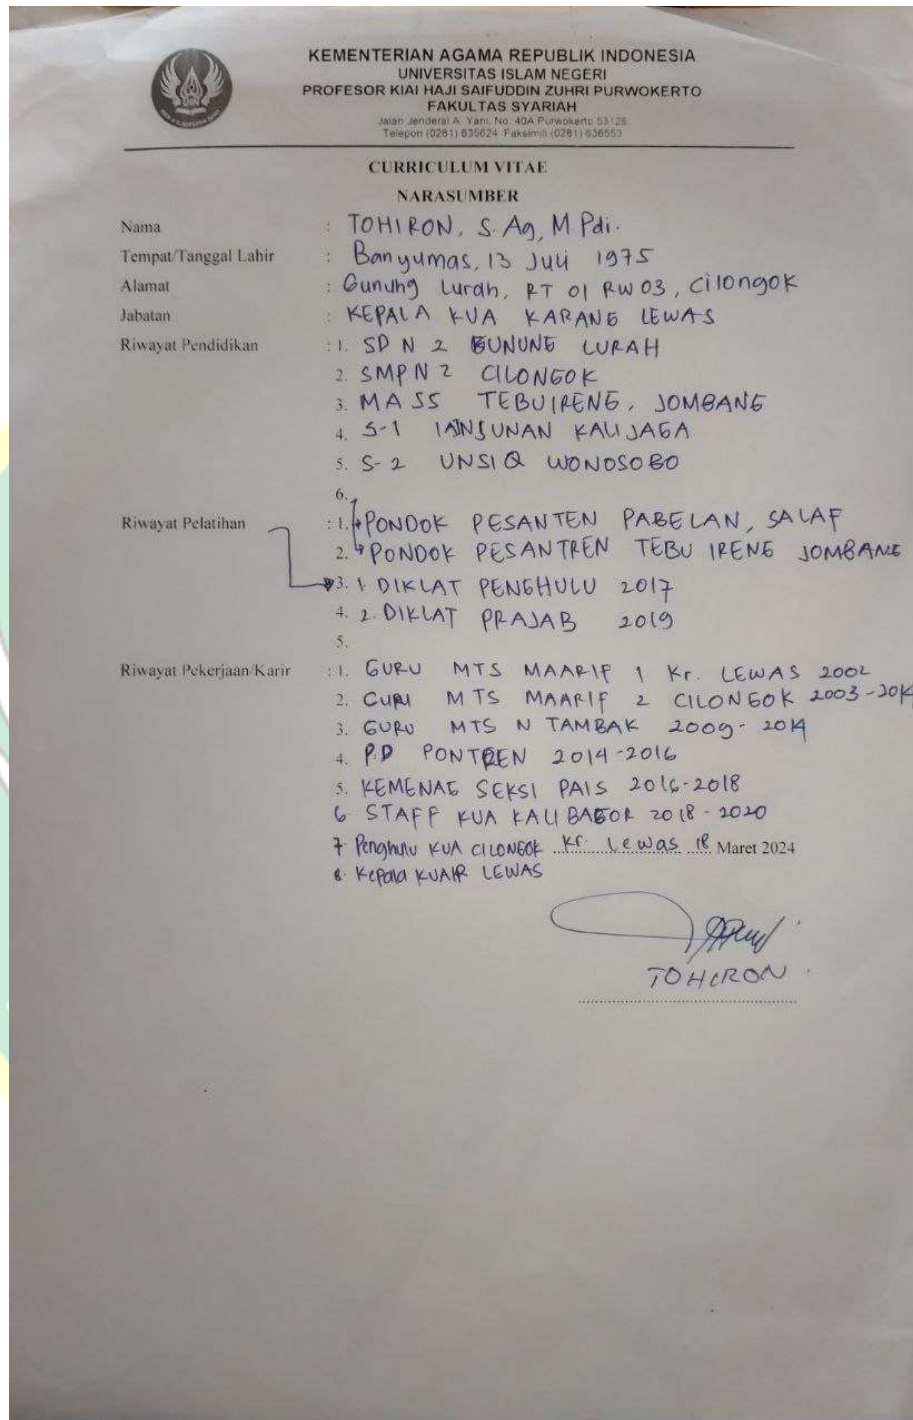 KEMENTERIAN AGAMA REPUBLIK INDONESIA
UNIVERSITAS ISLAM NEGERI
PROFESOR KIAI HAJI SAIFUDDIN ZUHRI PURWOKERTO
FAKULTAS SYARIAH
Jalan Jenderal A. Yani, No. 40A Purwokerto 53126
Telepon (0281) 635624 Faksimili (0281) 636553
CURRICULUM VITAE
NARASUMBER
Nama : TOHIRON, S. Ag, M Pdi.
Tempat/Tanggal Lahir : Banyumas, 13 Juli 1975
Alamat : Gunung Lurah, RT 01 RW 03, Cilongok
Jabatan : KEPALA KUA KARANG LEWAS
Riwayat Pendidikan : 1. SD N 2 GUNUNG LURAH
2. SMP N 2 CILONGOK
3. MASS TEBUIRENG, JOMBANG
4. S-1 IAIN SUNAN KALIJAGA
5. S-2 UNSIQ WONOSOBO
6.
Riwayat Pelatihan : 1. PONDOK PESANTEN PABELAN, SALAF
2. PONDOK PESANTREN TEBU IRENG JOMBANG
3. 1. DIKLAT PENGHULU 2017
4. 2. DIKLAT PRAJAB 2019
5.
Riwayat Pekerjaan/Karir : 1. GURU MTS MAARIF 1 Kr. LEWAS 2002
2. GURU MTS MAARIF 2 CILONGOK 2003-2014
3. GURU MTS N TAMBAK 2009-2014
4. P.D PONTREN 2014-2016
5. KEMENAG SEKSI PAIS 2016-2018
6. STAFF KUA KALIBAGOR 2018-2020
7. Penghulu KUA CILONGOK Kr. Lewas 18 Maret 2024
8. Kepala KUA KR LEWAS
TOHIRON